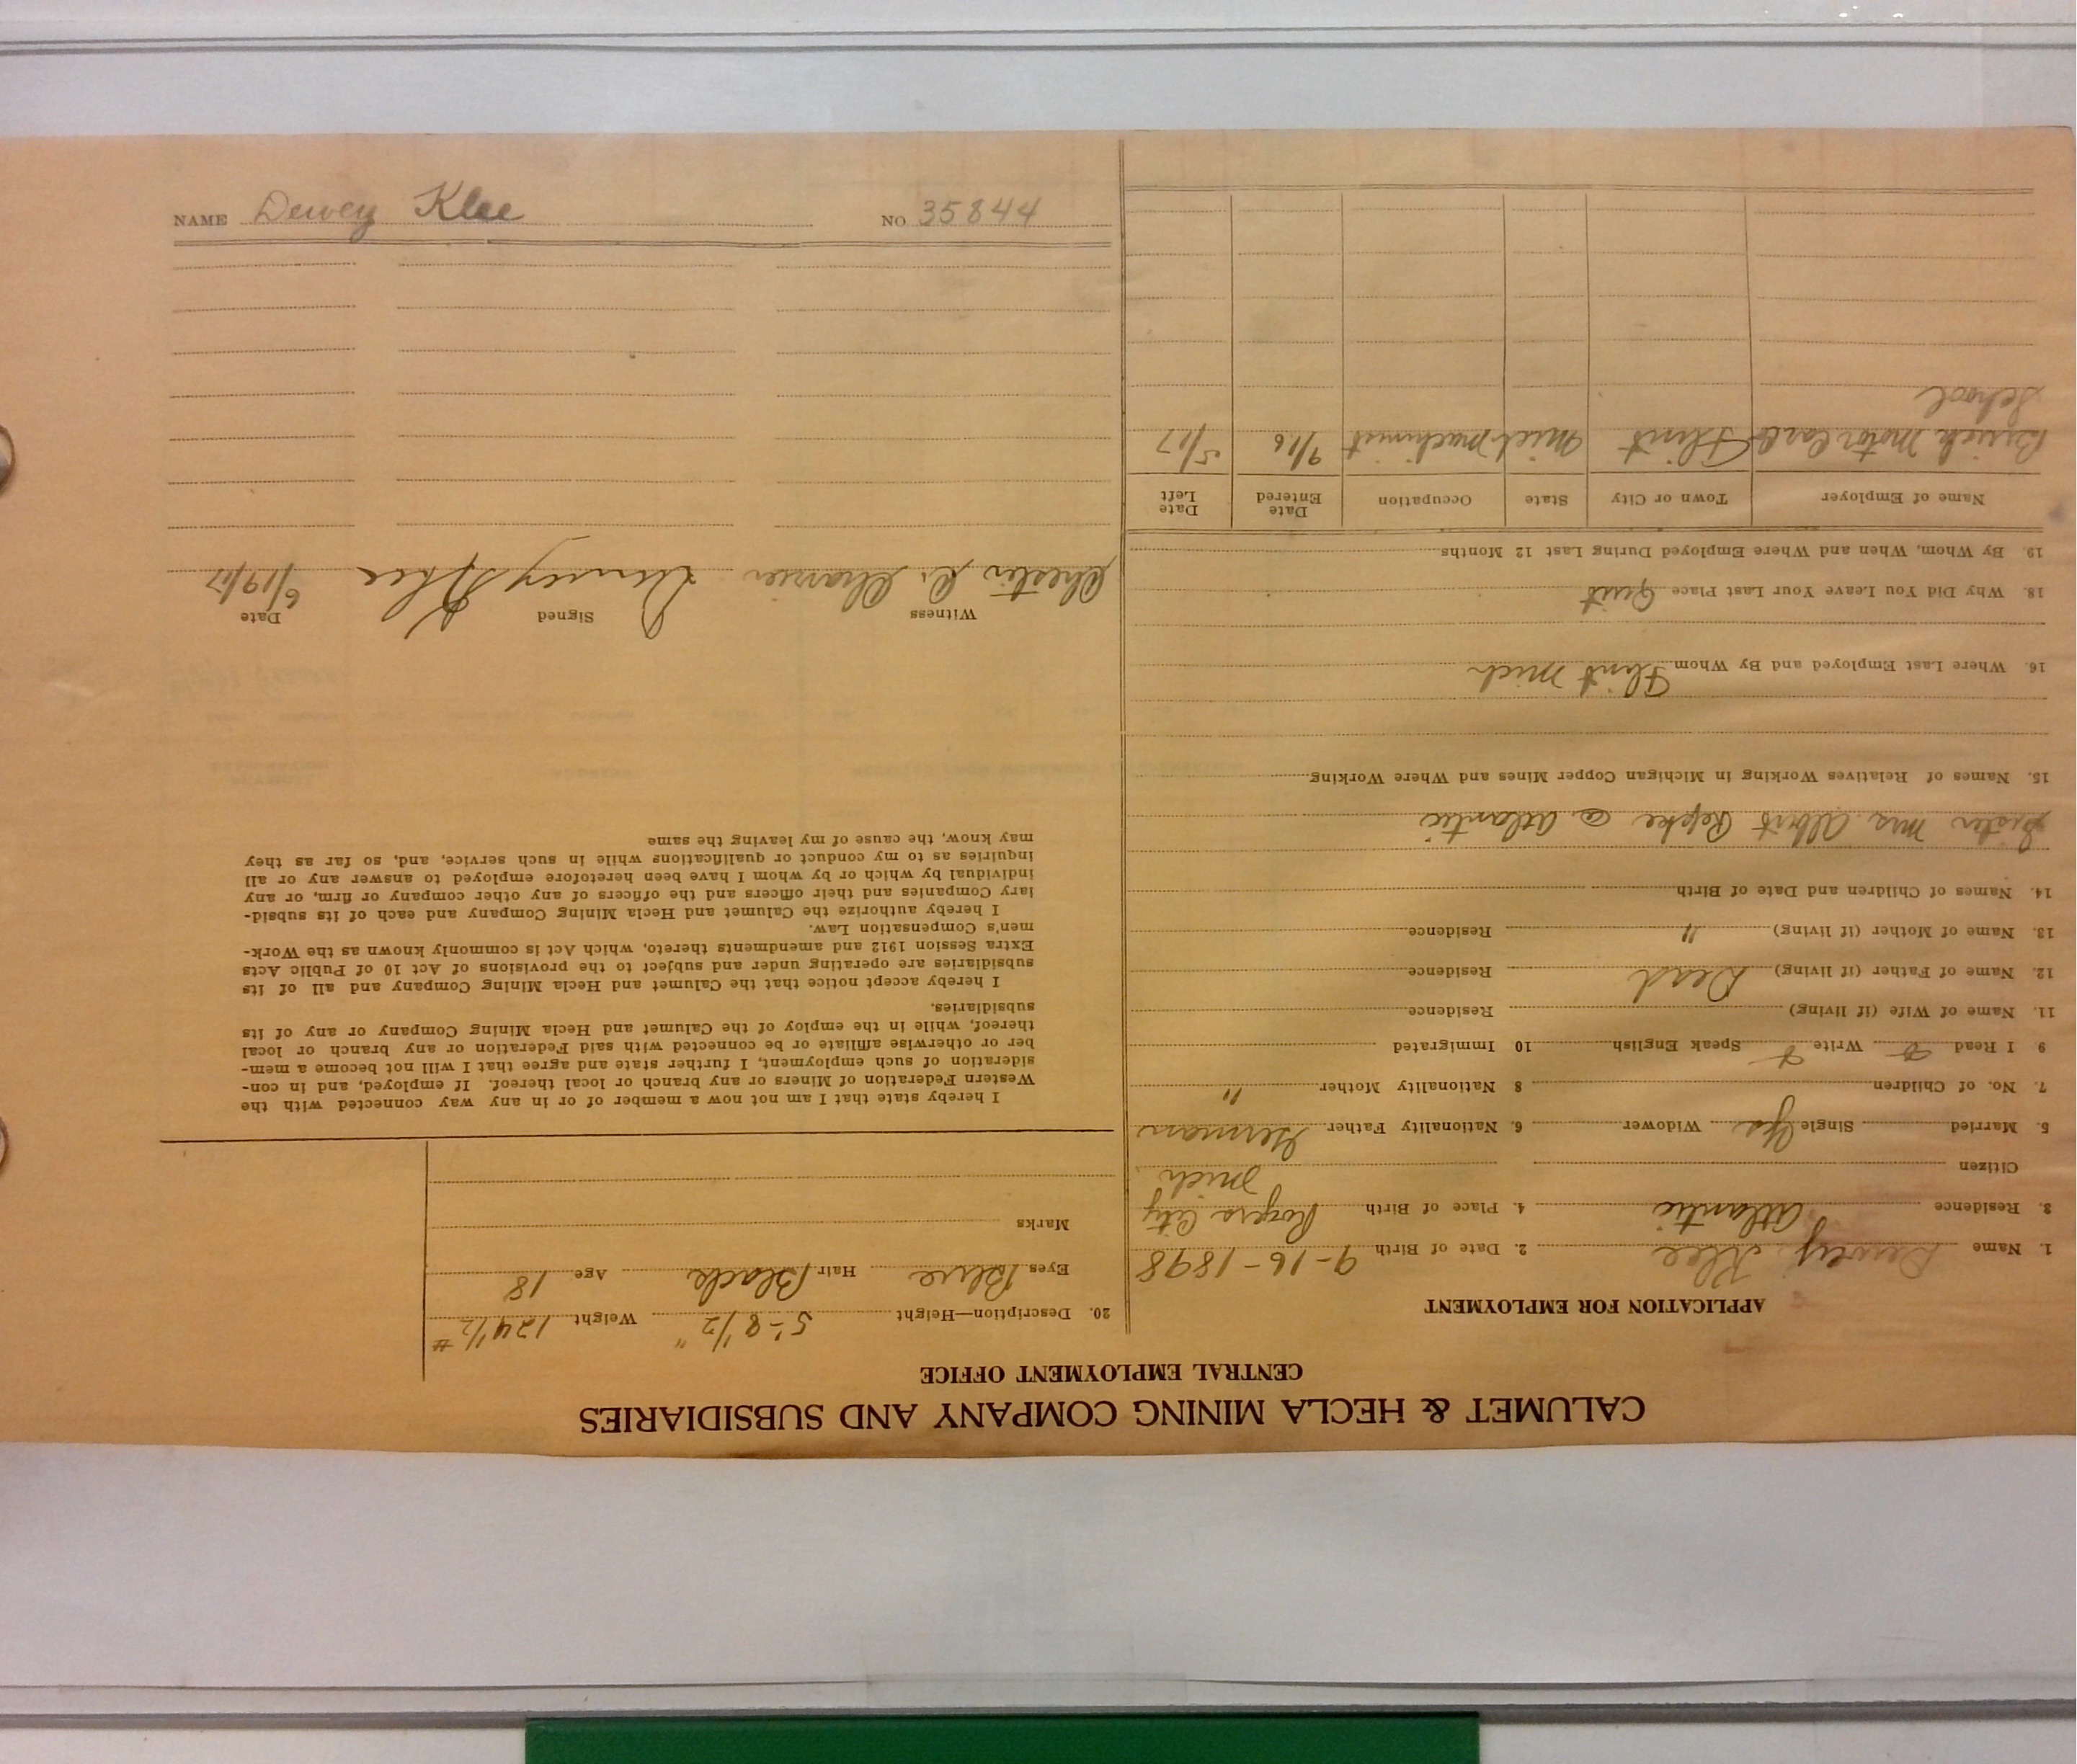 CALUMET & HECLA MINING COMPANY AND SUBSIDIARIES
CENTRAL EMPLOYMENT OFFICE
APPLICATION FOR EMPLOYMENT
1. Name Dewey Klee 2. Date of Birth 9-16-1898
3. Residence Atlantic 4. Place of Birth Rogers City
Mich
Citizen
5. Married Single Yes Widower 6. Nationality Father German
7. No. of Children 8 Nationality Mother "
9 I Read Write Speak English 10 Immigrated
11. Name of Wife (if living) Residence
12. Name of Father (if living) Dead Residence
13. Name of Mother (if living) " Residence
14. Names of Children and Date of Birth
Sister Mrs. Albert Repke @ Atlantic
15. Names of Relatives Working in Michigan Copper Mines and Where Working
16. Where Last Employed and By Whom Flint Mich
18. Why Did You Leave Your Last Place Quit
19. By Whom, When and Where Employed During Last 12 Months
Name of Employer Town or City State Occupation Date Entered Date Left
Buick Motor Car Co Flint Mich Machinist 9/16 5/17
School
20. Description—Height 5'-8 1/2" Weight 124 1/2 #
Eyes Blue Hair Black Age 18
Marks
I hereby state that I am not now a member of or in any way connected with the
Western Federation of Miners or any branch or local thereof. If employed, and in con-
sideration of such employment, I further state and agree that I will not become a mem-
ber or otherwise affiliate or be connected with said Federation or any branch or local
thereof, while in the employ of the Calumet and Hecla Mining Company or any of its
subsidiaries.
I hereby accept notice that the Calumet and Hecla Mining Company and all of its
subsidiaries are operating under and subject to the provisions of Act 10 of Public Acts
Extra Session 1912 and amendments thereto, which Act is commonly known as the Work-
men's Compensation Law.
I hereby authorize the Calumet and Hecla Mining Company and each of its subsid-
iary Companies and their officers and the officers of any other company or firm, or any
individual by which or by whom I have been heretofore employed to answer any or all
inquiries as to my conduct or qualifications while in such service, and, so far as they
may know, the cause of my leaving the same
Witness Signed Date
Chester C. Dewey Klee 6/19/17
NAME Dewey Klee NO 35844